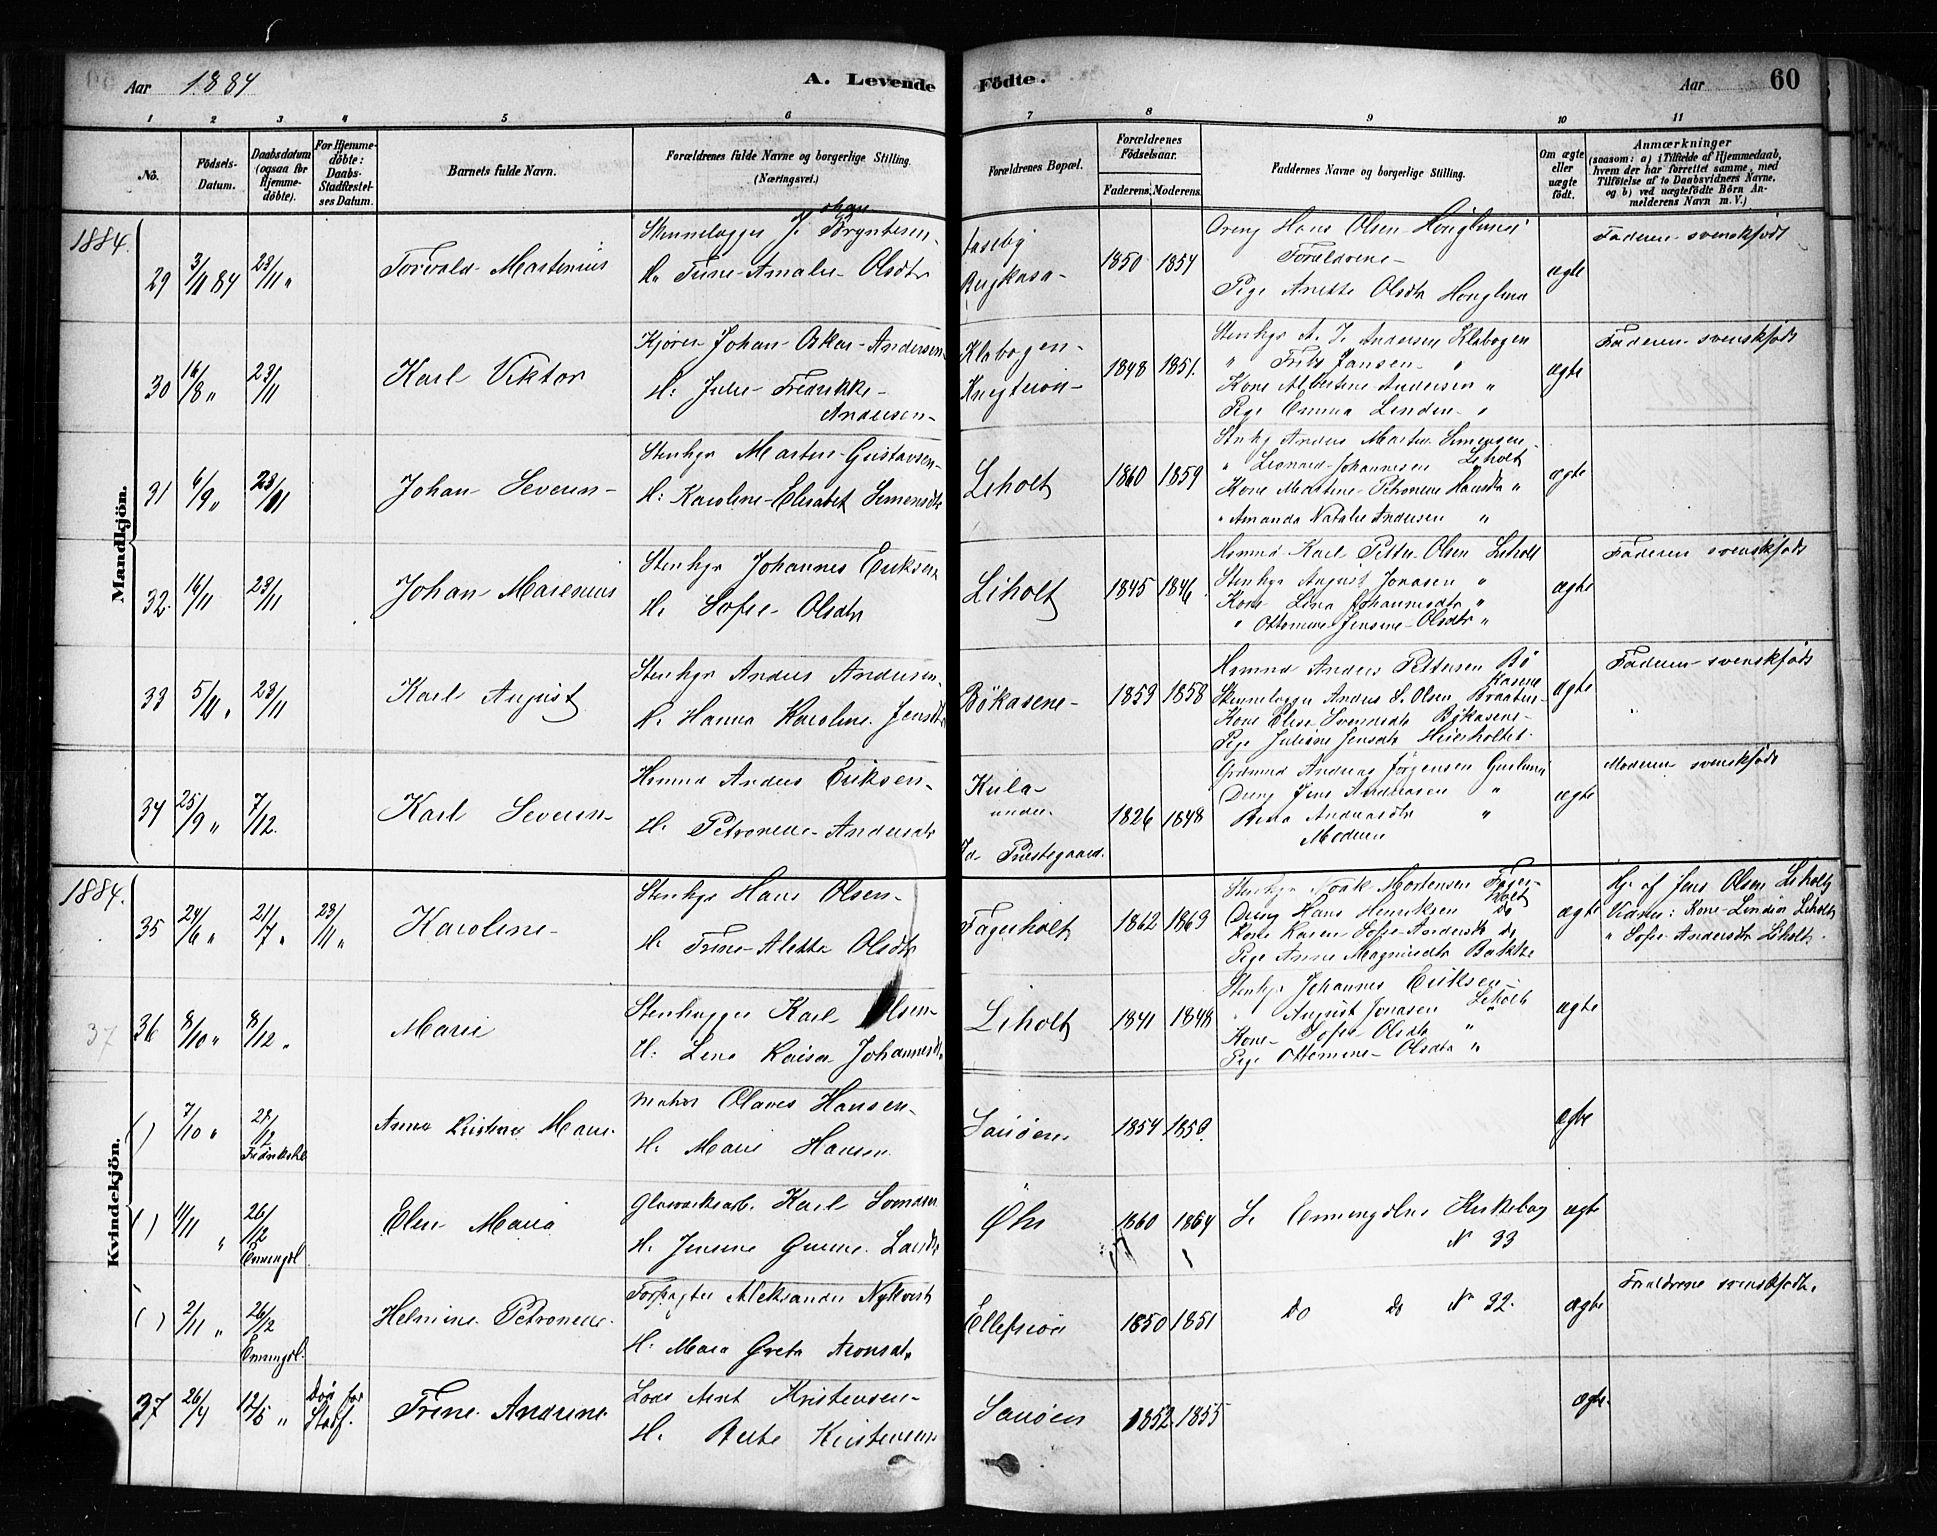 Aar 1884 A. Levende Födte. Aar 60
1 2 3 4 5 6 7 8 9 10 11
No.
Födsels-Datum.
Daabsdatum (ogsaa for Hjemme-döbte).
For Hjemme-döbte: Daabs-Stadfæstel-ses Datum.
Barnets fulde Navn.
Forældrenes fulde Navne og borgerlige Stilling. (Næringsvei.)
Forældrenes Bopæl.
Forældrenes Födselsaar.
Faderens. Moderens.
Faddernes Navne og borgerlige Stilling.
Om ægte eller uægte födt.
Anmærkninger
(saasom: a) i Tilfælde af Hjemmedaab, hvem der har forrettet samme, med Tilföielse af to Daabsvidners Navne, og b) ved uægtefödte Börn An-melderens Navn m. V.)
Mandkjön.
1884.
29 3/11 84 23/11 " Torvald Martenius
Stenhugger J. Bryntesen
H. Trine Amalie Olsdtr
1850 1854
Dreng Hans Olsen
Forældrene
Pige Anette Olsdtr
ægte
Faderen svenskfødt
30 16/8 " 23/11 Karl Viktor
Kjører Johan Oskar Andersen
H. Julie Fredrikke Andersen
1848 1851
Stenhgr A. J. Andersen
" Frits Jansen "
Kone Albertine Andersen "
Pige Emma Linden "
ægte
Faderen svenskfødt
31 6/9 " 23/11 Johan Severin
Stenhgr Martin Gustavsen
H. Karoline Elisabet Simensdtr
Liholt
1860 1859
Stenhgr Anders Martin Simensen
" Leonard Johannesen Liholt
Kone Martine Petronene Hansdtr "
" Amanda Natalie Andersen "
ægte
32. 16/11 23/11 Johan Marenius
Stenhgr Johannes Eriksen
H. Sofie Olsdtr
Liholt
1845 1846
Hsmnd Karl Petter Olsen Liholt
Stenhgr August Jonasen "
Kone Lina Johannesdtr "
" Ottomine Jensine Olsdtr "
ægte
Faderen svenskfødt
33 5/11 " 23/11 Karl August
Stenhgr Anders Andersen
H. Hanna Karoline Jensdtr
Bökasene
1859 1858
Hsmnd Anders Pettersen Bökasene
Stenhugger Anders S. Olsen
Kone Elise Svensdtr Bökasene
Pige Juliane Jensdtr
ægte
Faderen svenskfødt
34 25/9 " 7/12. Karl Severin
Hsmnd Anders Eriksen
H. Petronelle Andersdtr
Kula
under
Id Prestegaard.
1826 1848
Grdmnd Andreas Jørgensen
Dreng Jens Andreasen "
Andreasdtr "
Moderen
ægte
Moderen svenskfødt
Kvindekjön.
1884.
35 24/6 " 21/7 " 23/11 " Karoline
Stenhgr Hans Olsen
H. Trine Aletta Olsdtr
Fagerholt
1862 1863
Stenhgr Mortensen Fagerholt
Dreng Hans Henriksen Do
Kone Karen Sofie Andersdtr do
Pige Anne Magnusdtr
ægte
Hj. af Jens Olsen Liholt
Vidner: Kone Lindia Liholt
" Sofie Andersdtr Liholt
37
36 8/10 " 8/12 " Marie
Stenhugger Karl Olsen
H. Lena Kaisa Johannesdtr
Liholt
1841 1848
Stenhgr Johannes Eriksen
" August Jonasen Liholt
Kone Sofie Olsdtr "
Pige Ottomine Olsdtr "
ægte
( ) 7/10 " Anna Kristine Marie
Olaves Hansen
H. Marie Hansen
Sauøen
1854 1850.
ægte
( ) 11/11 " 26/12 Enningdl Elen Maria
Karl Svendsen
H. Jensine
1860 1864
S. Enningdlens Kirkebog
No 33
ægte
( ) 2/11 " 26/12 Enningdl. Helmine Petronelle
Forpagter Aleksander Nykvist
H. Maria Greta Aronsdtr
1850 1851
Do Do No 32.
ægte
Forældrene svenskfødte.
37 26/4 12/5 " Død for Stadf. Trine Andrine
Lods Arnt Kristensen
H. Berte Kristensen
Sauøen
1852 1855
ægte.